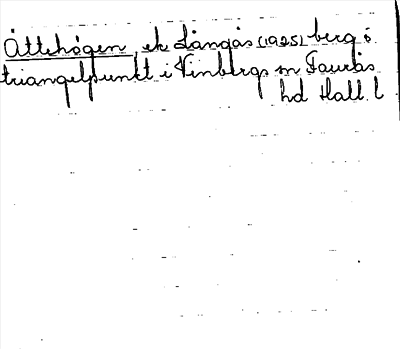 Åttehögen, ek Långås (1925) berg o
triangelpunkt i Vinbergs sn Faurås
hd Hall. l